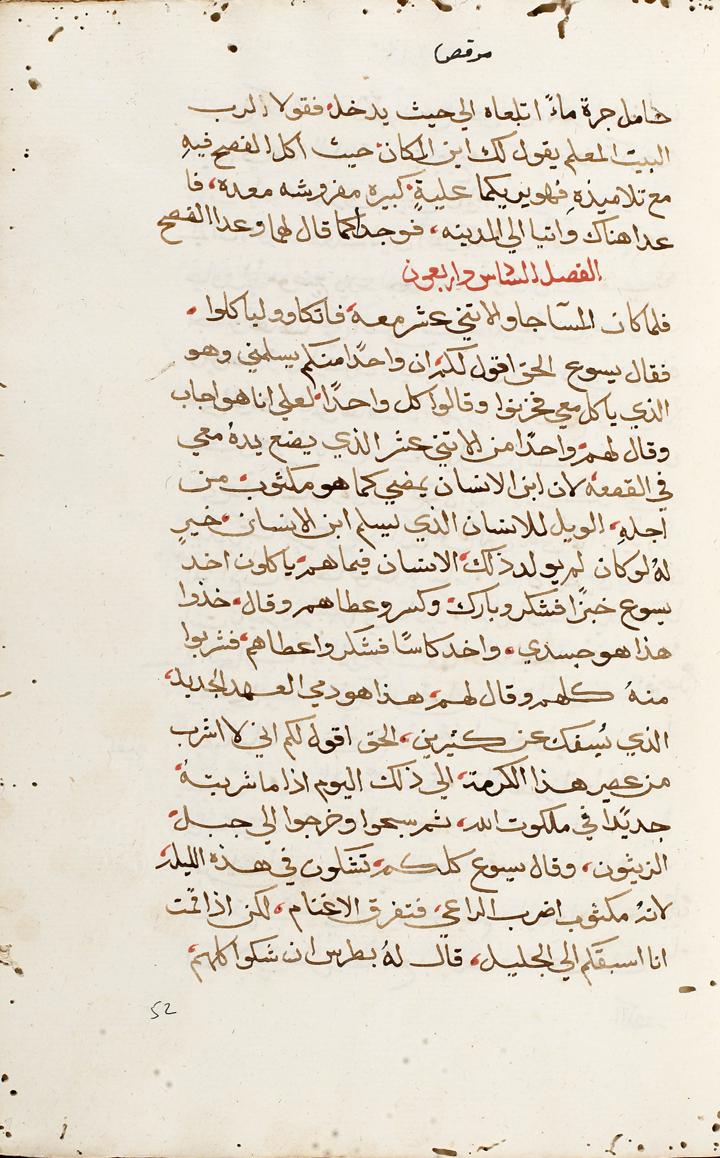 مرقص
حامل جرة ماءً اتبعاه الي حيث يدخل فقولا لرب
البيت المعلم يقول لك اين المكان حيث اكل الفصح فيهِ
مع تلاميذهِ فهو يريكما عليةٍ كبيره مفروشه معده، فا
عدا هناك واتيا الي المدينه، فوجدا كما قال لهما وعدا الفصح
الفصل السادس واربعون
فلما كان المسآ جا والاتني عشر معه فاتكاوو لياكلوا
فقال يسوع الحق اقول لكم ان واحدًا منكم يسلمني وهو
الذي ياكل معي فحزنوا وقالوا كل واحدًا لعلي انا هو اجاب
وقال لهم واحدًا من الاتني عشر الذي يضع يدهُ معي
في القصعه لان ابن الانسان يمضي كما هو مكتوب من
اجلهِ، الويل للانسان الذي يسلم ابن الانسان خيرٍ
لهُ لو كان لم يولد ذلك الانسان فيما هم ياكلون اخد
يسوع خبزًا فشكر وبارك وكسر وعطاهم وقال خذوا
هذا هو جسدي، واخد كاسًا فشكر واعطاهم فشربوا
منهُ كلهم وقال لهم هذا هو دمي العهد الجديد،
الذي يُسفك عن كتيرين، الحق اقول لكم اني لا اشرب
من عصير هذا الكرمة الي ذلك اليوم اذا ما شربتهُ
جديدًا في ملكوت الله، ثم سبحوا وخرجوا الي جبل
الزيتون، وقال يسوع كلكم تشكون في هذه الليلة
لانهُ مكتوب اضرب الراعي فتفرق الاغنام، لكن اذا قمت
انا اسبقكم الي الجليل، قال لهُ بطرس ان شكوا كلهم
52